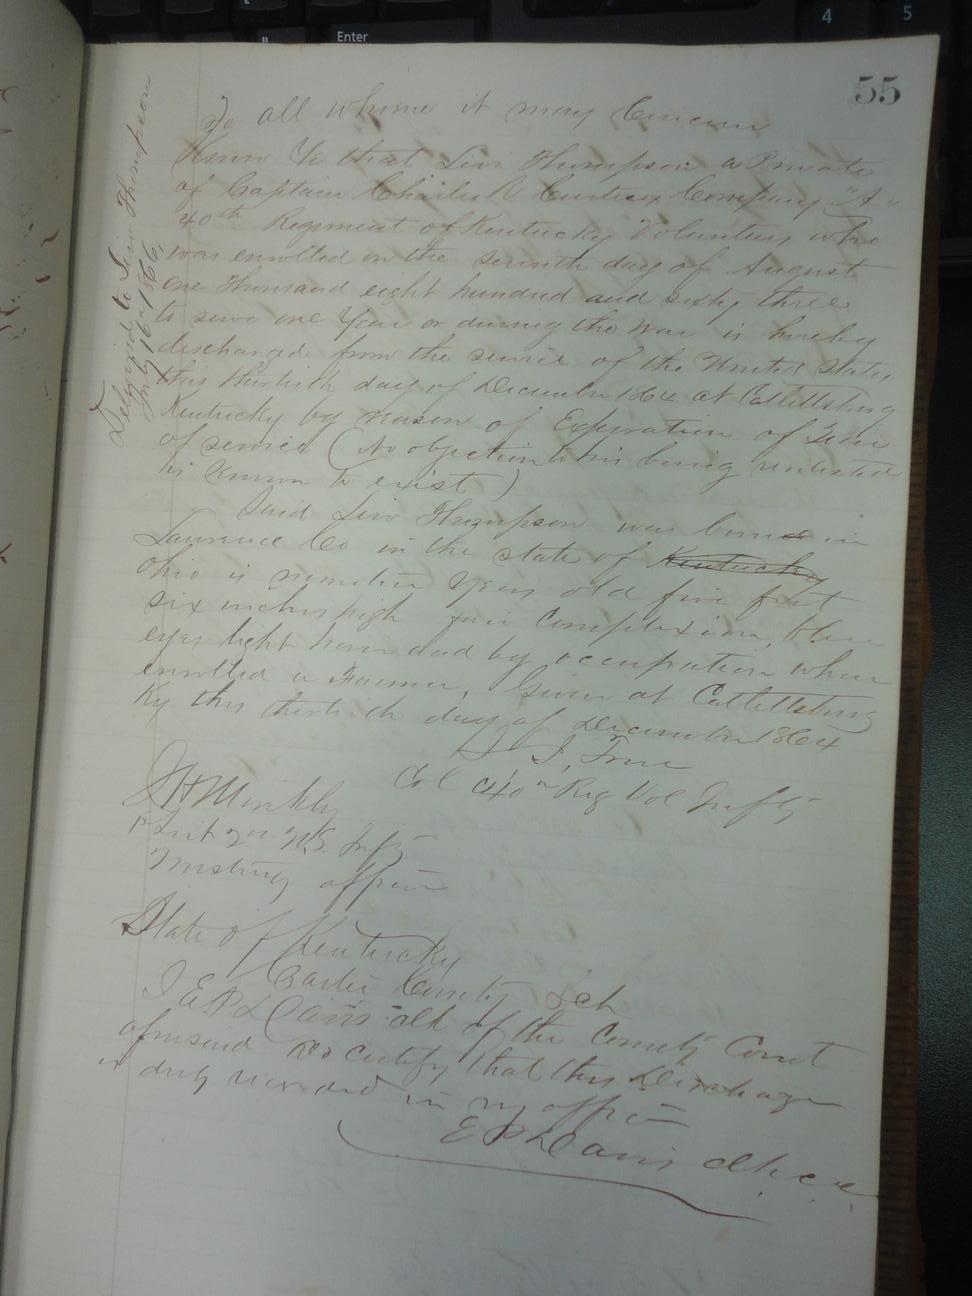 55
To all whome it may Concern
Know Ye that Levi Thompson a Private
of Captain Charles R Company "A"
40th Regiment of Kentucky Volunteers who
was enrolled on the seventh day of August
one Thousand eight hundred and sixty three
to serve one Year or during the War is hereby
discharged from the service of the United States
this thirtieth day of December 1864 at Catlettsburg
Kentucky by reason of Expiration of Term
of service (No objection to his being reenlisted
is known to exist)
Said Levi Thompson was born in
Lawrence Co in the state of Kentucky
Ohio is nineteen Years old five feet
six inches high fair Complexion, blue
eyes light hair and by occupation when
enrolled a Farmer, Given at Catlettsburg
Ky this thirtieth day of December 1864
True
Col 40th Reg Vol Infty
1st Lieut U.S. Infty
Mustering officer
State of Kentucky
Carter County Sct
I E P Davis clk of the County Court
aforesaid Do certify that this Discharge
is duly recorded in my office
E P Davis clk
Delivered to Levi Thompson
July 16 - 1866